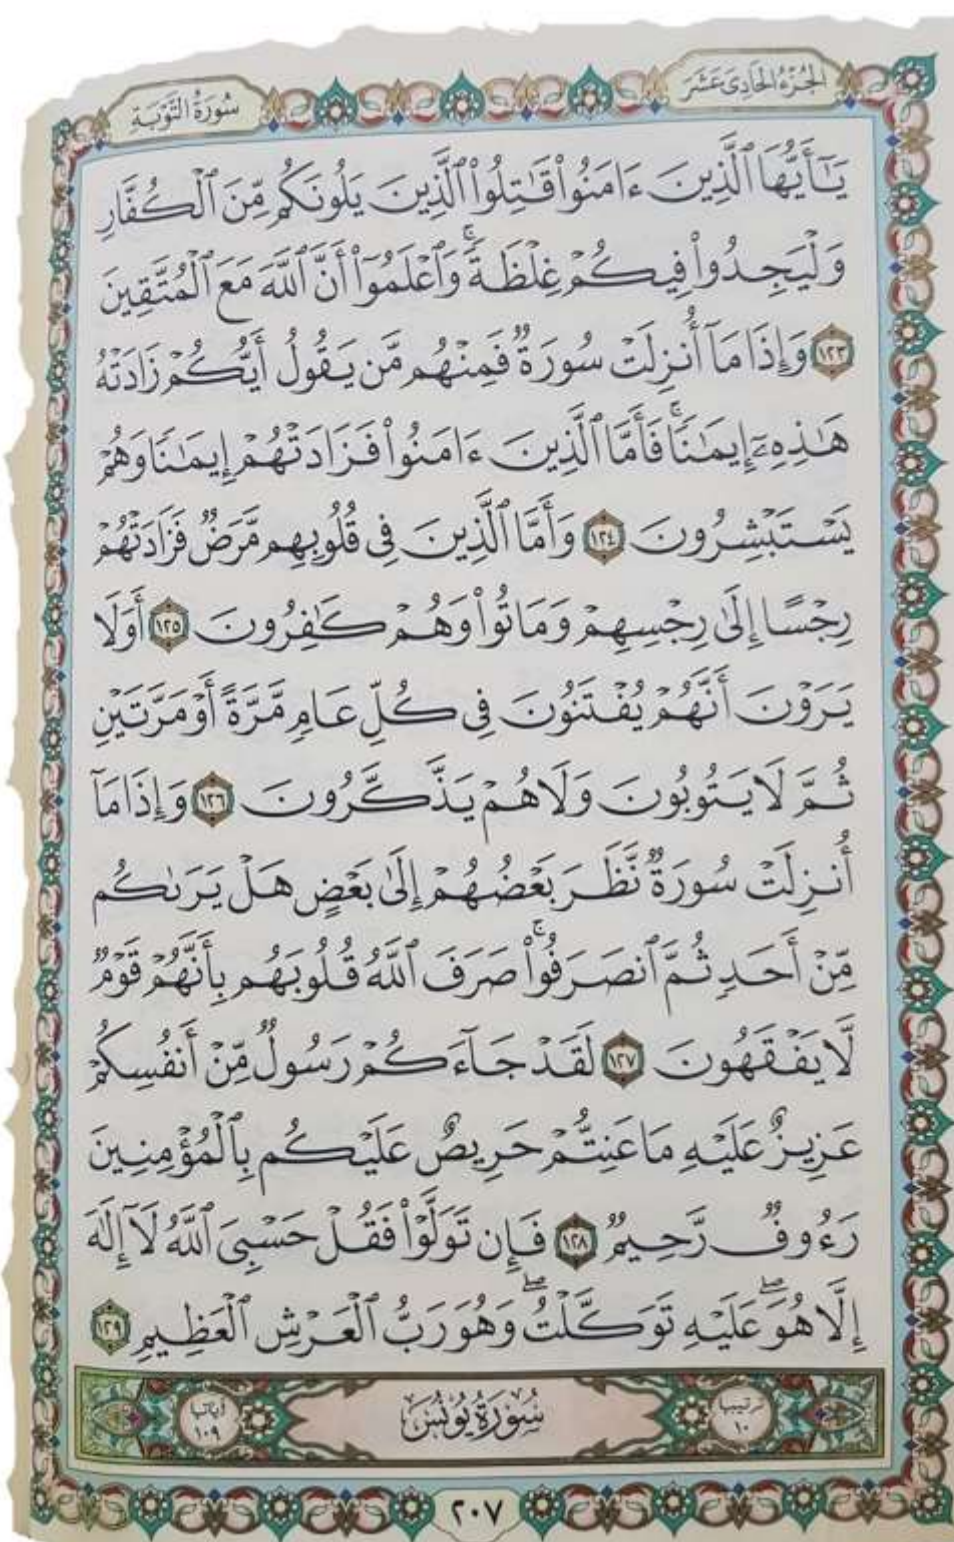 الجُزْءُ الحَادِىَ عَشَرَ
سُورَةُ التَّوْبَةِ
يَـٰٓأَيُّهَا ٱلَّذِينَ ءَامَنُوا۟ قَـٰتِلُوا۟ ٱلَّذِينَ يَلُونَكُم مِّنَ ٱلْكُفَّارِ
وَلْيَجِدُوا۟ فِيكُمْ غِلْظَةً ۚ وَٱعْلَمُوٓا۟ أَنَّ ٱللَّهَ مَعَ ٱلْمُتَّقِينَ
١٢٣ وَإِذَا مَآ أُنزِلَتْ سُورَةٌ فَمِنْهُم مَّن يَقُولُ أَيُّكُمْ زَادَتْهُ
هَـٰذِهِۦٓ إِيمَـٰنًا ۚ فَأَمَّا ٱلَّذِينَ ءَامَنُوا۟ فَزَادَتْهُمْ إِيمَـٰنًا وَهُمْ
يَسْتَبْشِرُونَ ١٢٤ وَأَمَّا ٱلَّذِينَ فِى قُلُوبِهِم مَّرَضٌ فَزَادَتْهُمْ
رِجْسًا إِلَىٰ رِجْسِهِمْ وَمَاتُوا۟ وَهُمْ كَـٰفِرُونَ ١٢٥ أَوَلَا
يَرَوْنَ أَنَّهُمْ يُفْتَنُونَ فِى كُلِّ عَامٍ مَّرَّةً أَوْ مَرَّتَيْنِ
ثُمَّ لَا يَتُوبُونَ وَلَا هُمْ يَذَّكَّرُونَ ١٢٦ وَإِذَا مَآ
أُنزِلَتْ سُورَةٌ نَّظَرَ بَعْضُهُمْ إِلَىٰ بَعْضٍ هَلْ يَرَىٰكُم
مِّنْ أَحَدٍ ثُمَّ ٱنصَرَفُوا۟ ۚ صَرَفَ ٱللَّهُ قُلُوبَهُم بِأَنَّهُمْ قَوْمٌ
لَّا يَفْقَهُونَ ١٢٧ لَقَدْ جَآءَكُمْ رَسُولٌ مِّنْ أَنفُسِكُمْ
عَزِيزٌ عَلَيْهِ مَا عَنِتُّمْ حَرِيصٌ عَلَيْكُم بِٱلْمُؤْمِنِينَ
رَءُوفٌ رَّحِيمٌ ١٢٨ فَإِن تَوَلَّوْا۟ فَقُلْ حَسْبِىَ ٱللَّهُ لَآ إِلَـٰهَ
إِلَّا هُوَ ۖ عَلَيْهِ تَوَكَّلْتُ ۖ وَهُوَ رَبُّ ٱلْعَرْشِ ٱلْعَظِيمِ ١٢٩
ترتيبها
١٠
سُورَةُ يُونُسَ
آياتها
١٠٩
٢٠٧